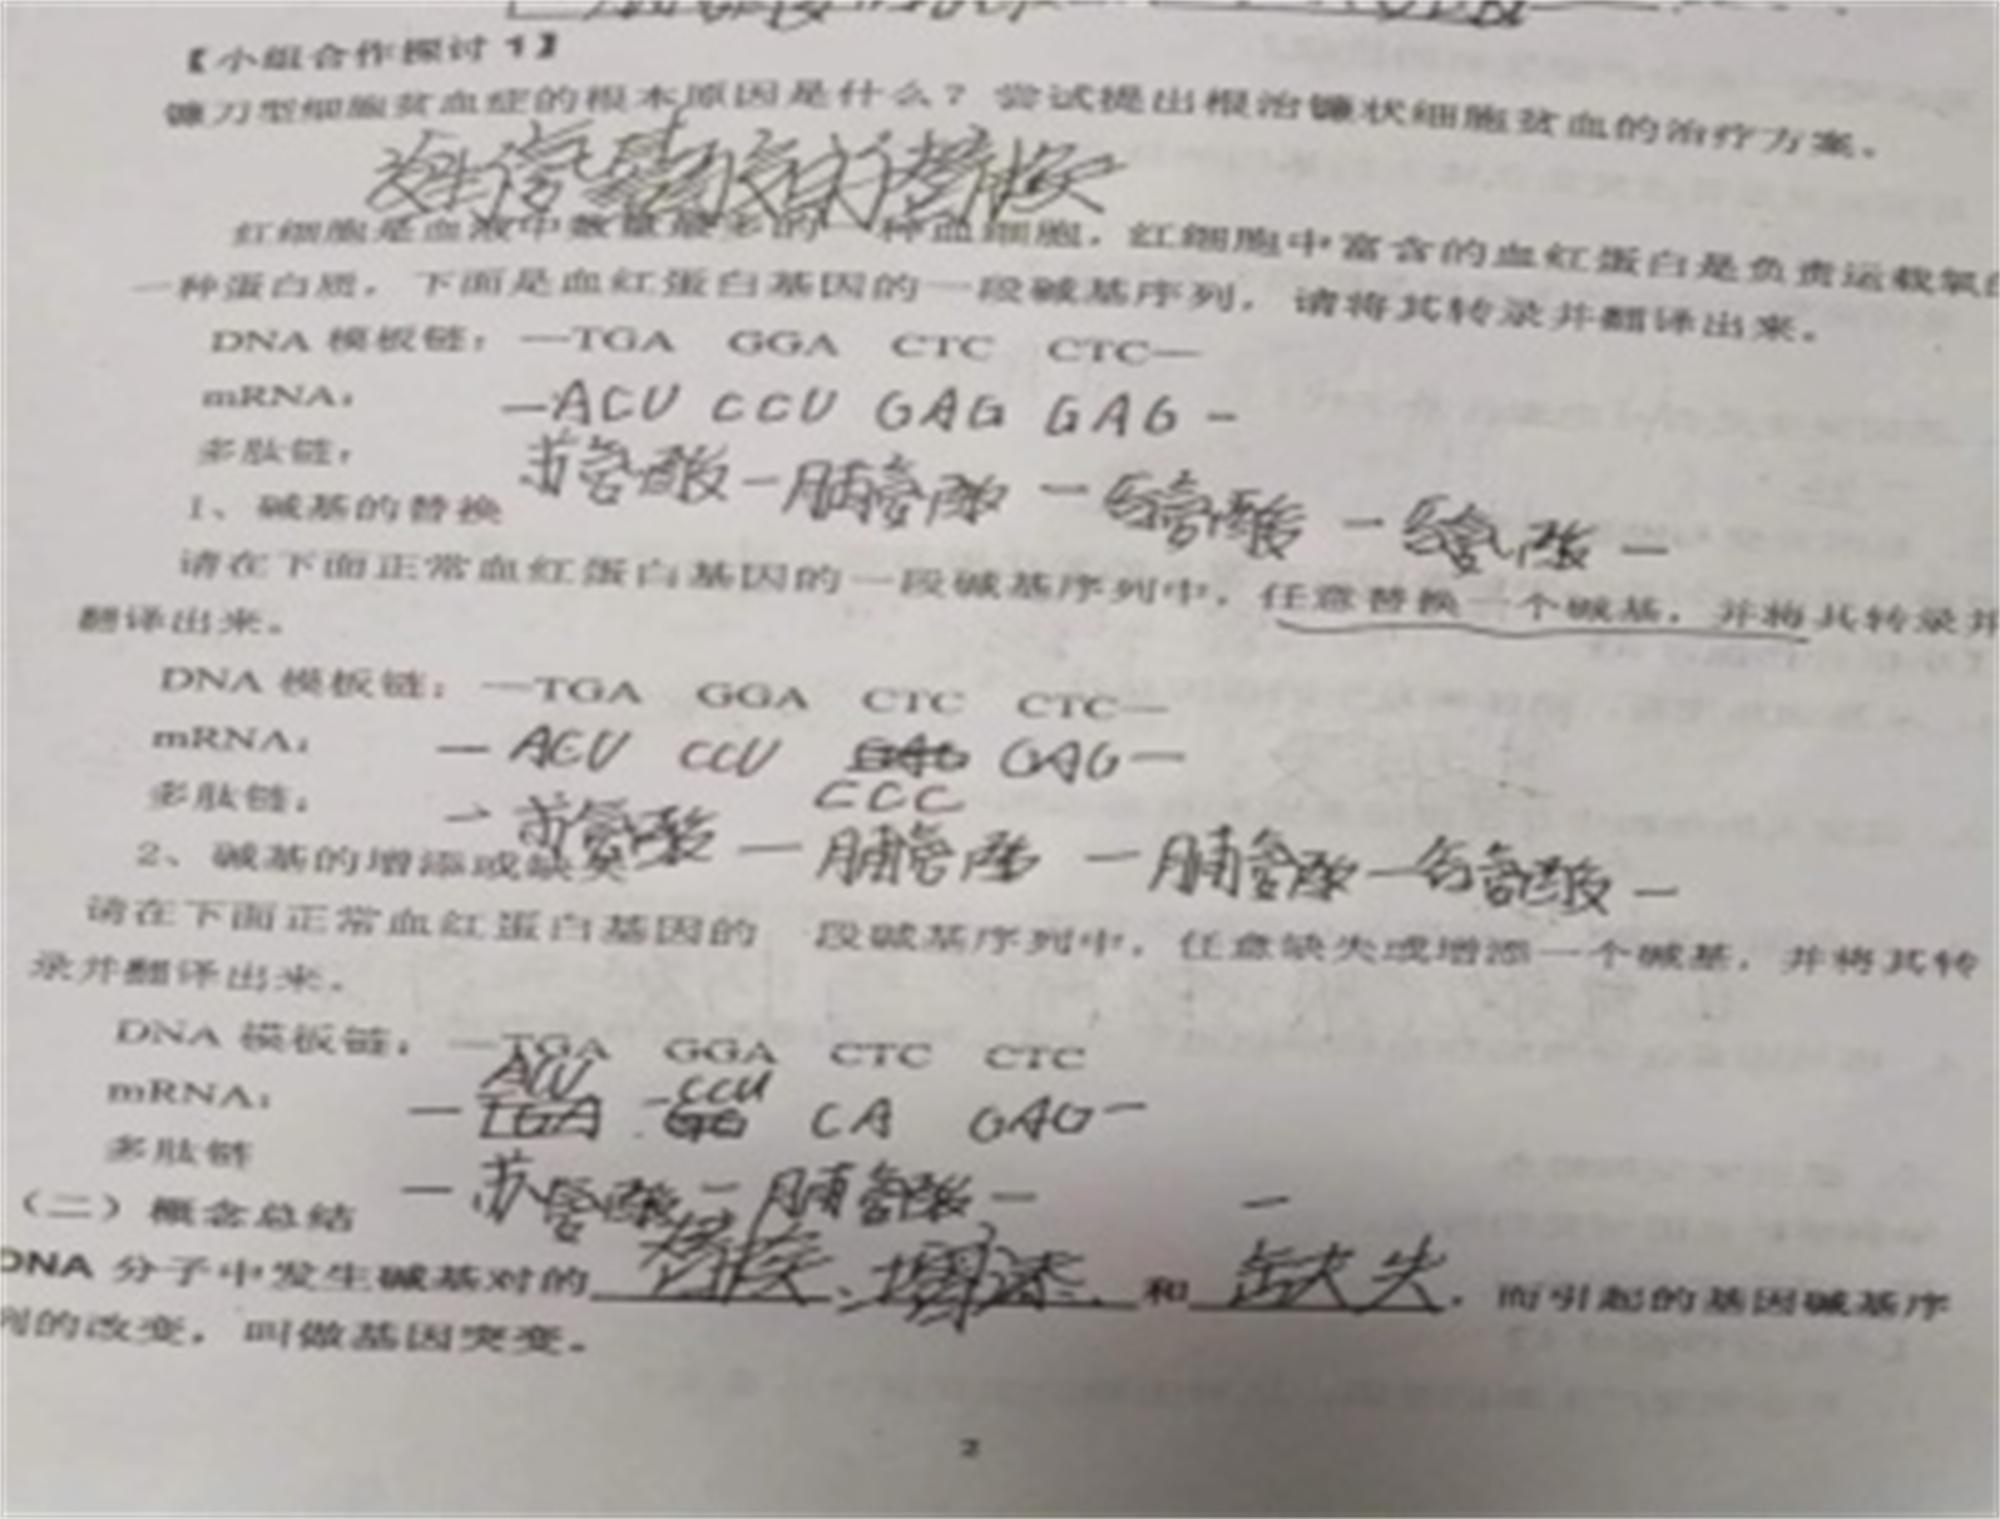 【小组合作探讨 1】
镰刀型细胞贫血症的根本原因是什么？尝试提出根治镰状细胞贫血的治疗方案。
发生了氢基酸的替换
红细胞是血液中数量最多的一种血细胞，红细胞中富含的血红蛋白是负责运载氧的
一种蛋白质，下面是血红蛋白基因的一段碱基序列，请将其转录并翻译出来。
DNA 模板链：—TGA GGA CTC CTC—
mRNA： —ACU CCU GAG GAG—
多肽链： 苏氨酸—脯氨酸—谷氨酸—谷氨酸—
1、碱基的替换
请在下面正常血红蛋白基因的一段碱基序列中，任意替换一个碱基，并将其转录并
翻译出来。
DNA 模板链：—TGA GGA CTC CTC—
mRNA： —ACU CCU GAG GAG—
CCC
多肽链： —苏氨酸—脯氨酸—脯氨酸—谷氨酸—
2、碱基的增添或缺失
请在下面正常血红蛋白基因的 段碱基序列中，任意缺失或增添一个碱基，并将其转
录并翻译出来。
DNA 模板链：—TGA GGA CTC CTC
ACU —CCU
mRNA： —TGA GG CA GAG—
多肽链 —苏氨酸—脯氨酸— —
（二）概念总结
DNA 分子中发生碱基对的替换、增添和缺失，而引起的基因碱基序
列的改变，叫做基因突变。
2